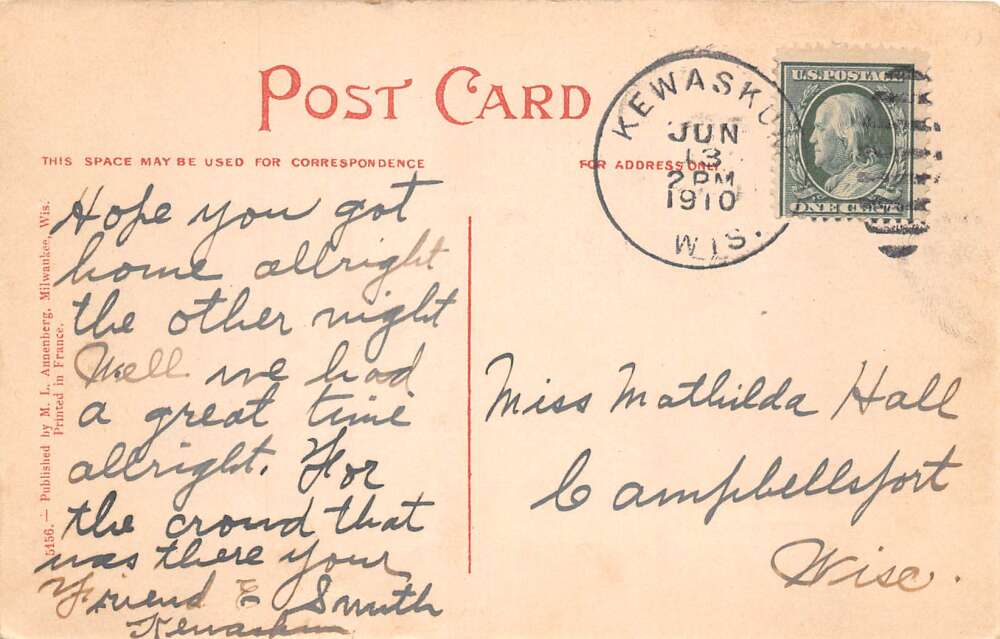 POST CARD
THIS SPACE MAY BE USED FOR CORRESPONDENCE
FOR ADDRESS ONLY
KEWASKUM
JUN
13
2 PM
1910
WIS.
U.S. POSTAGE
ONE CENT
5456. — Published by M. L. Annenberg, Milwaukee, Wis.
Printed in France.
Hope you got
home allright
the other night
Well we had
a great time
allright. For
the crowd that
was there your
Friend E Smith
Kewaskum
Miss Mathilda Hall
Campbellsport
Wisc.